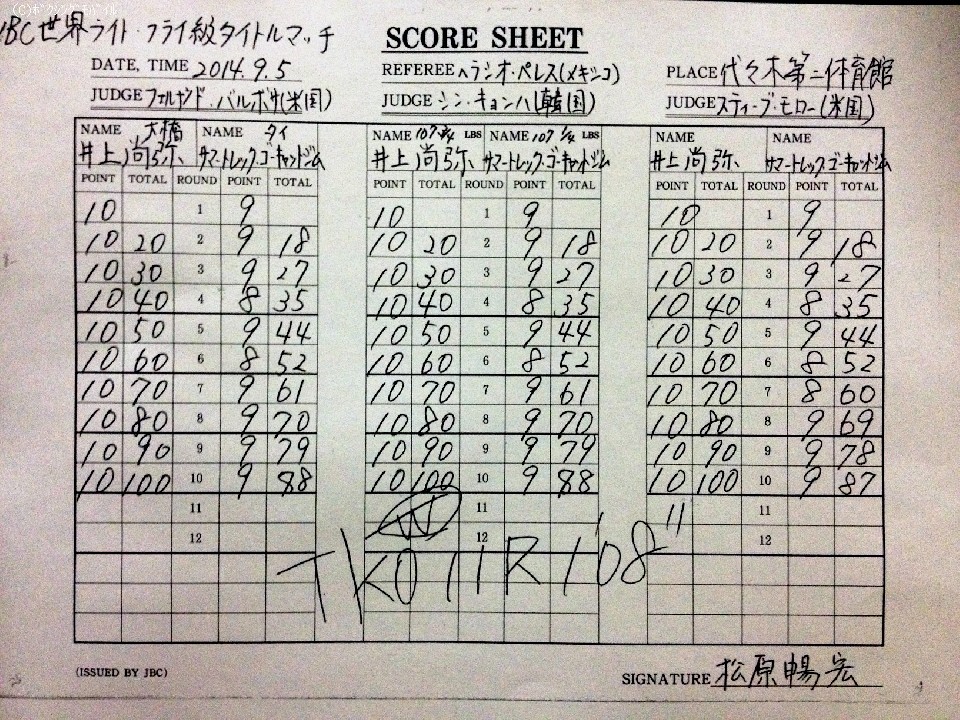 WBC世界ライト・フライ級タイトルマッチ
SCORE SHEET
DATE, TIME 2014.9.5 REFEREE ヘラシオ・ペレス(メキシコ) PLACE 代々木第二体育館
JUDGE フェルナンド・バルボサ(米国) JUDGE シン・キョンハ(韓国) JUDGE スティーブ・モロー(米国)
NAME 大橋 NAME タイ NAME 107 3/4 LBS NAME 107 1/4 LBS NAME NAME
井上尚弥 サマートレック・ゴーキャットジム 井上尚弥 サマートレック・ゴーキャットジム 井上尚弥 サマートレック・ゴーキャットジム
POINT TOTAL ROUND POINT TOTAL POINT TOTAL ROUND POINT TOTAL POINT TOTAL ROUND POINT TOTAL
10 1 9 10 1 9 10 1 9
10 20 2 9 18 10 20 2 9 18 10 20 2 9 18
10 30 3 9 27 10 30 3 9 27 10 30 3 9 27
10 40 4 8 35 10 40 4 8 35 10 40 4 8 35
10 50 5 9 44 10 50 5 9 44 10 50 5 9 44
10 60 6 8 52 10 60 6 8 52 10 60 6 8 52
10 70 7 9 61 10 70 7 9 61 10 70 7 8 60
10 80 8 9 70 10 80 8 9 70 10 80 8 9 69
10 90 9 9 79 10 90 9 9 79 10 90 9 9 78
10 100 10 9 88 10 100 10 9 88 10 100 10 9 87
11 W 11 11
12 12 12
TKO 11R 1'08"
(ISSUED BY JBC) SIGNATURE 松原暢宏